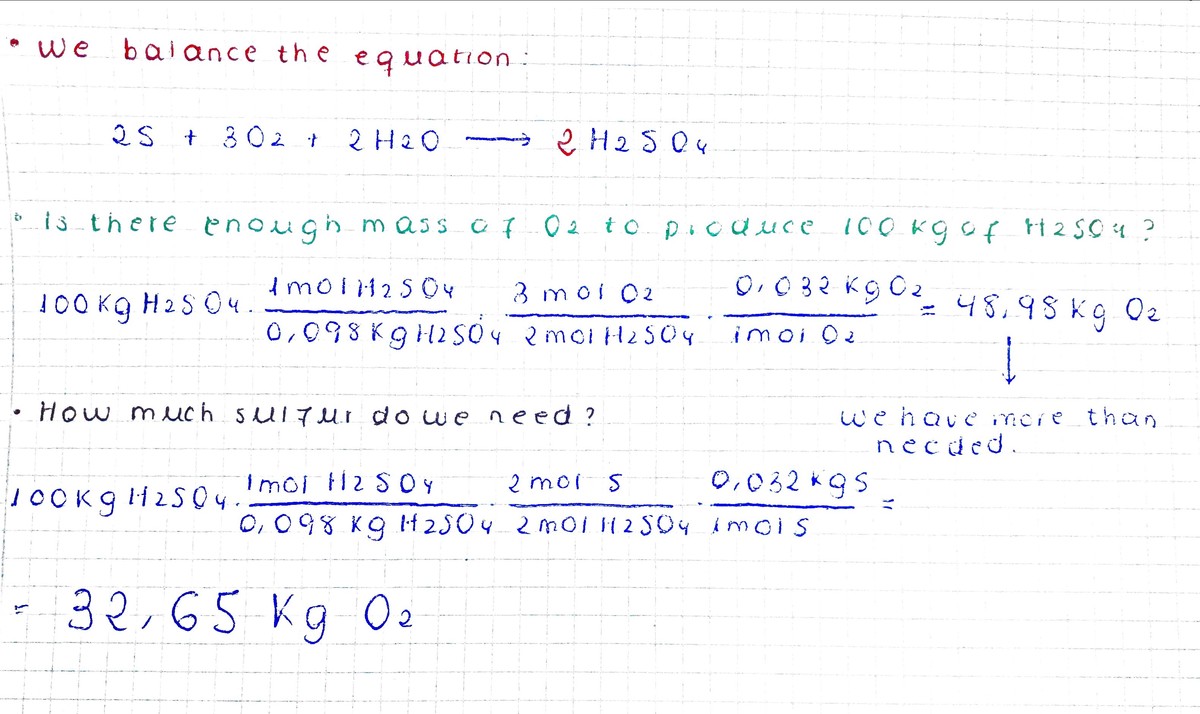 • We balance the equation:
2S + 3O2 + 2H2O → 2H2SO4
• Is there enough mass of O2 to produce 100 kg of H2SO4?
100 Kg H2SO4 · 1 mol H2SO4 / 0,098 Kg H2SO4 · 3 mol O2 / 2 mol H2SO4 · 0,032 Kg O2 / 1 mol O2 = 48,98 Kg O2
↓
• How much sulfur do we need?
we have more than
needed.
100 Kg H2SO4 · 1 mol H2SO4 / 0,098 Kg H2SO4 · 2 mol S / 2 mol H2SO4 · 0,032 Kg S / 1 mol S =
= 32,65 Kg O2